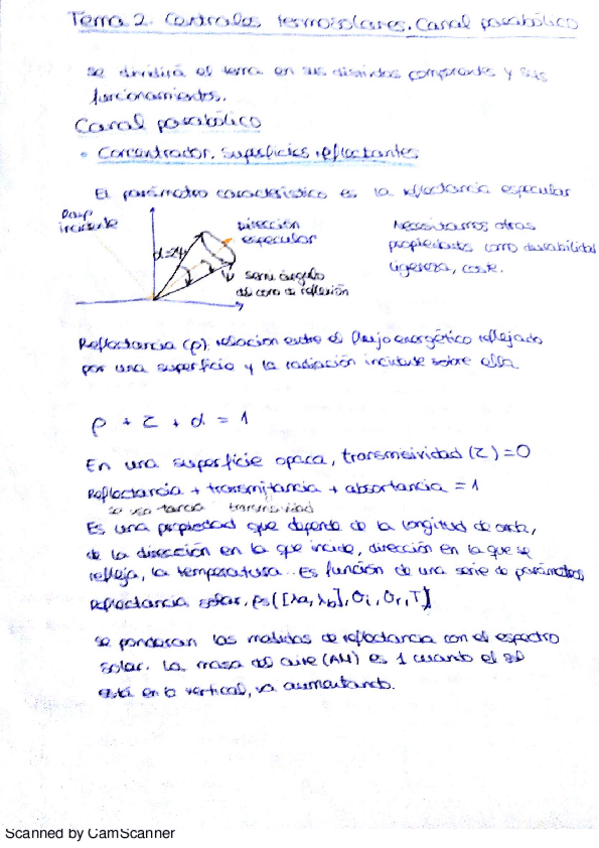 Tema 2. Centrales termosolares. Canal parabólico
se dividirá el tema en sus distintos componentes y sus
funcionamientos.
Canal parabólico
• Concentrador. Superficies reflectantes
El parámetro característico es la reflectancia especular
Rayo
incidente
Dirección
especular
d=24
ψ semi ángulo
del cono de reflexión
Necesitamos otras
propiedades como durabilidad
ligereza, coste.
Reflectancia (ρ), relación entre el flujo energético reflejado
por una superficie y la radiación incidente sobre ella.
ρ + τ + α = 1
En una superficie opaca, transmisividad (τ) = 0
Reflectancia + transmitancia + absortancia = 1
se usa tancia transmisividad
Es una propiedad que depende de la longitud de onda,
de la dirección en la que incide, dirección en la que se
refleja, la temperatura... Es función de una serie de parámetros
reflectancia solar, ρs([λa, λb], θi, θr, T)
se ponderan las medidas de reflectancia con el espectro
solar. La masa del aire (AM) es 1 cuando el sol
está en la vertical, va aumentando.
Scanned by CamScanner